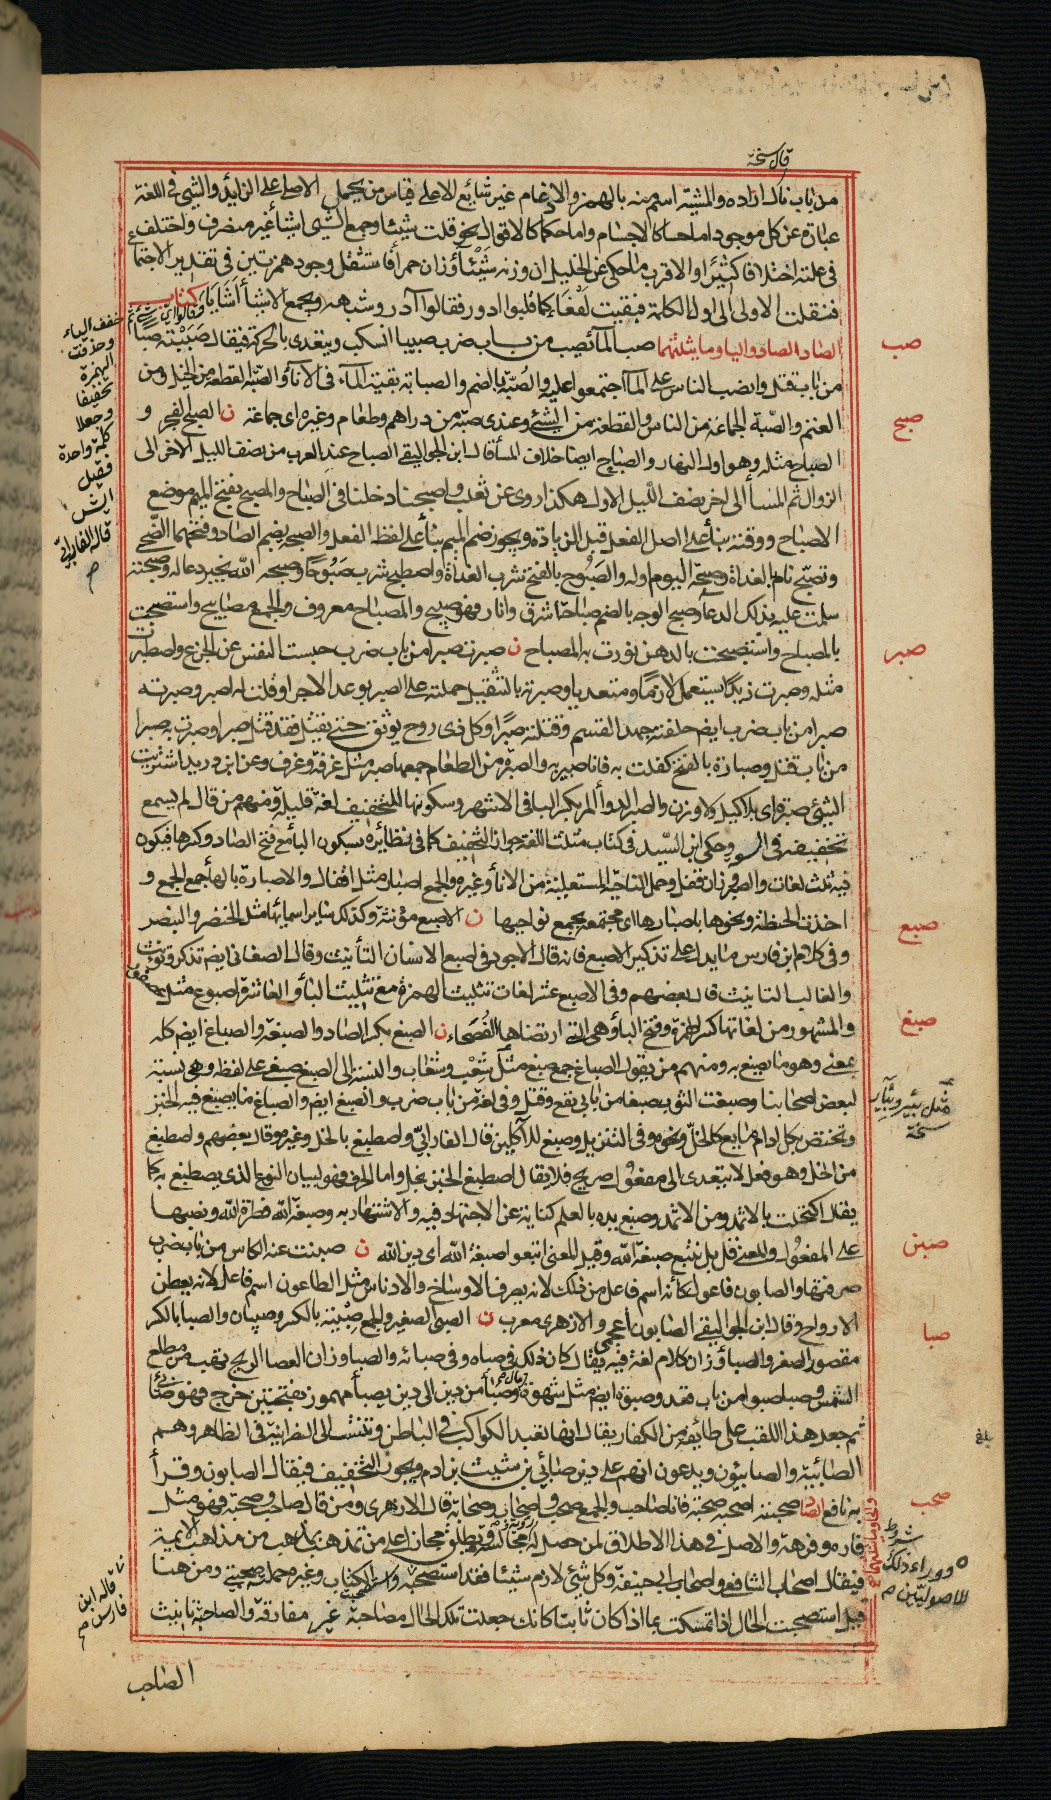 قال نسخة
من باب نال اراده والمشيئة اسم منه بالهمز والادغام غير شائع الا على قياس من يحمل الاصلي على الزايد والشيء في اللغة
عبارة عن كل موجود اما حسا كالاجسام واما حكما كالاقوال نحو قلت شيئا وجمع الشيء اشياء غير منصرف واختلف
في علته اختلافا كثيرا والاقرب ما حكى عن الخليل ان وزنه شيئاء وزان حمراء فاستثقل وجود همزتين في تقدير الاجتماع
فنقلت الاولى الى اول الكلمة فبقيت لفعاء كما قلبوا ادور فقالوا آدر وشبهه ويجمع الاشياء اشايا كتاب
الصاد الصاد والباء وما يثلثهما صب الماء يصب من باب ضرب صبيبا انسكب ويتعدى بالحركة فيقال صببته صبا
من باب قتل وانصب الناس على الماء اجتمعوا عليه والصبة بالضم والصبابة بقية الماء في الاناء والصبة القطعة من الخيل ومن
الغنم والصبة الجماعة من الناس والقطعة من الشيء وعندي صبة من دراهم وطعام وغيره اي جماعة ن الصبح الفجر و
الصباح مثله وهو اول النهار والصباح ايضا خلاف المساء قال ابن الجواليقي الصباح عند العرب من نصف الليل الاخر الى
الزوال ثم المساء الى اخر نصف الليل الاول هكذا روى عن ثعلب واصبحنا دخلنا في الصباح والمصبح بفتح الميم موضع
الاصباح ووقته بناء على اصل الفعل قبل الزيادة ويجوز ضم الميم بناء على لفظ الفعل والصبحة بضم الصاد وفتحها الضحى
وتصبح نام بالغداة وصبحة اليوم اوله والصبوح بالفتح شرب الغداة واصطبح شرب صبوحا وصبحه الله بخير دعا له وصبحته
سلمت عليه بذلك الدعاء وصبح الوجه بالضم صباحة اشرق وانار فهو صبيح والمصباح معروف والجمع مصابيح واستصبحت
بالمصباح واستصبحت بالدهن نورت به المصباح ن صبرت صبرا من باب ضرب حبست النفس عن الجزع واصطبرت
مثله وصبرت زيدا يستعمل لازما ومتعديا وصبرته بالتثقيل حملته على الصبر بوعد الاجر او قلت له اصبر وصبرته
صبرا من باب ضرب ايضا حلفته جهد القسم وقتلته صبرا وكل ذي روح يوثق حتى يقتل فقد قتل صبرا وصبرت به صبرا
من باب قتل وصبارة بالفتح كفلت به فانا صبير به والصبرة من الطعام جمعها صبر مثل غرفة وغرف وعن ابن دريد اشتريت
الشيء صبرة اي بلا كيل ولا وزن والصبر الدواء المر بكسر الباء في الاشهر وسكونها للتخفيف لغة قليلة ومنهم من قال لم يسمع
تخفيفه في السعة وحكى ابن السيد في كتاب مثلث اللغة جواز التخفيف كما في نظائره بسكون الباء مع فتح الصاد وكسرها فيكون
فيه ثلث لغات والصبر وزان قفل وحمل الناحية المستعلية من الاناء وغيره والجمع اصبار مثل اقفال والاصبارة بالهاء جمع الجمع و
اخذت الحنطة ونحوها باصبارها اي مجتمعة بجميع نواحيها ن الاصبع مؤنثة وكذلك سائر اسمائها مثل الخنصر والبنصر
وفي كلام ابن فارس ما يدل على تذكير الاصبع فانه قال الاجود في اصبع الانسان التأنيث وقال الصغاني ايضا تذكر وتؤنث
والغالب التانيث قال بعضهم وفي الاصبع عشر لغات تثليث الهمزة مع تثليث الباء والعاشرة اصبوع مثل عصفور
والمشهور من لغاتها كسر الهمزة وفتح الباء وهي التي ارتضاها الفصحاء ن الصبغ بكسر الصاد والصبغة والصباغ ايضا كله
بمعنى وهو ما يصبغ به ومنهم من يقول الصباغ جمع صبغ مثل شعب وشعاب والنسبة الى الصبغ صبغي على لفظه وهي نسبة
لبعض اصحابنا وصبغت الثوب صبغا من بابي نفع وقتل وفي لغة من باب ضرب والصبغ ايضا والصباغ ما يصبغ فيه الخبز
ويختص بكل ادام مايع كالخل ونحوه وفي التنزيل وصبغ للآكلين قال الفارابي واصطبغ بالخل وغيره وقال بعضهم واصطبغ
من الخل وهو فعل لا يتعدى الى مفعول صريح فلا يقال اصطبغ الخبز بخل واما الحرف فهو لبيان النوع الذي يصطبغ به كما
يقال اكتحلت بالاثمد ومن الاثمد وصبغ يده بالعلم كناية عن الاجتهاد فيه والاشتهار به وصبغة الله فطرة الله ونصبها
على المفعول والمعنى قل بل نتبع صبغة الله وقيل المعنى اتبعوا صبغة الله اي دين الله ن صبنت عنه الكاس من باب ضرب
صرفتها والصابون فاعول كأنه اسم فاعل من ذلك لانه يصرف الاوساخ والادناس مثل الطاعون اسم فاعل لانه يطعن
الارواح وقال ابن الجواليقي الصابون اعجمي والازهري معرب ن الصبي الصغير والجمع صبية بالكسر وصبيان والصبا بالكسر
مقصور الصغر والصباء وزان كلام لغة فيه يقال كان ذلك في صباه وفي صبائه والصبا وزان العصا الريح تهب من مطلع
الشمس وصبا صبوا من باب قعد وصبوة ايضا مثل شهوة مال وصبأ من دين الى دين يصبأ مهموز بفتحتين خرج فهو صابئ
ثم جعل هذا اللقب على طائفة من الكفار يقال انها تعبد الكواكب في الباطن وتنسب الى النصرانية في الظاهر وهم
الصابئة والصابئون ويدعون انهم على دين صابئ بن شيث بن ادم ويجوز التخفيف فيقال الصابون وقرأ
به نافع الصاد صحبته اصحبه صحبة فانا صاحب والجمع صحب واصحاب وصحابة قال الازهري ومن قال صاحب وصحبة فهو مثل
فاره وفرهة والاصل في هذا الاطلاق لمن حصل له رؤية ومجالسة ويطلق مجازا على من تمذهب بمذهب من مذاهب الايمة
فيقال اصحاب الشافعي واصحاب ابي حنيفة وكل شيء لازم شيئا فقد استصحبه واستصحبت الكتاب وغيره حملته صحبتي ومن هنا
قيل استصحبت الحال اذا تمسكت بما اذا كان ثابتا كانك جعلت تلك الحال مصاحبة غير مفارقة والصاحبة تانيث
الصاحب
صب
صبح
صبر
صبع
صبغ
مثل بئر وبئار
نسخة
صبن
صبا
بلغ
صحب
والحاء وما يثلثهما
شروط
ووراء ذلك
للاصوليين م
وقالوا اي شيء ثم
خفف الياء
وحذفت
الهمزة
تخفيفا
وجعلا
كلمة واحدة
فقيل
ايش
قاله الفارابي
م
قاله ابن
فارس م